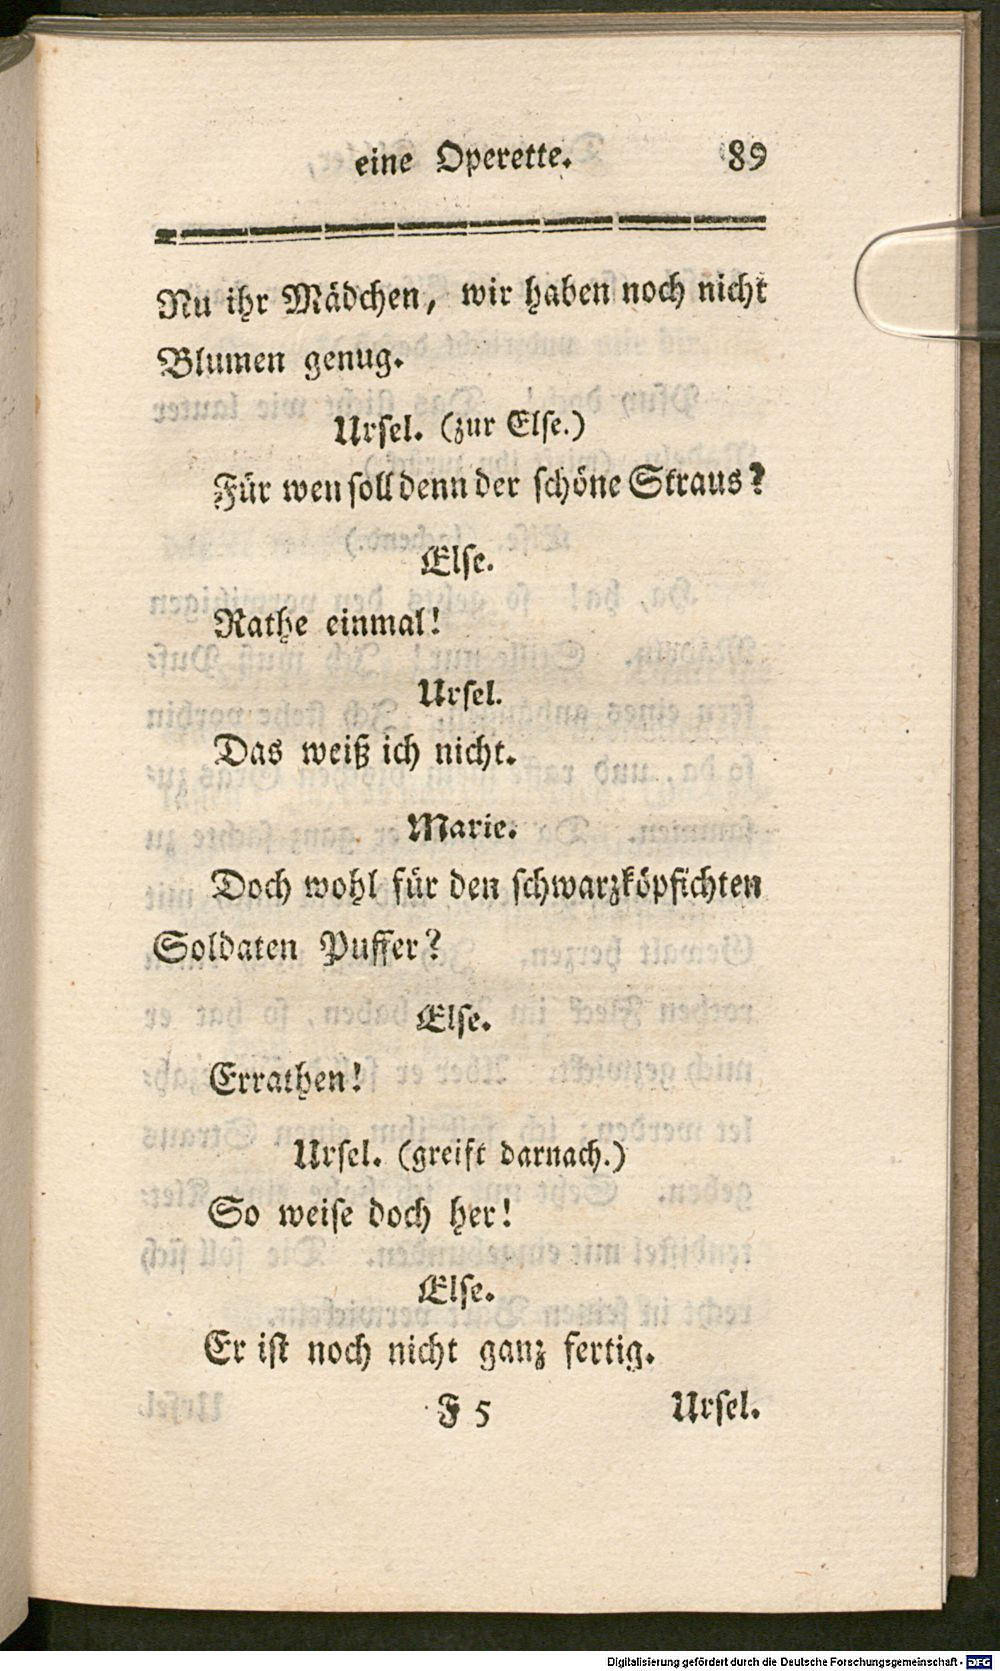 eine Operette. 89
Nu ihr Mädchen, wir haben noch nicht
Blumen genug.
Urſel. (zur Elſe.)
Für wen ſoll denn der ſchöne Straus?
Elſe.
Rathe einmal!
Urſel.
Das weiß ich nicht.
Marie.
Doch wohl für den ſchwarzköpfichten
Soldaten Puffer?
Elſe.
Errathen!
Urſel. (greift darnach.)
So weiſe doch her!
Elſe.
Er iſt noch nicht ganz fertig.
F 5 Urſel.
Digitalisierung gefördert durch die Deutsche Forschungsgemeinschaft - DFG